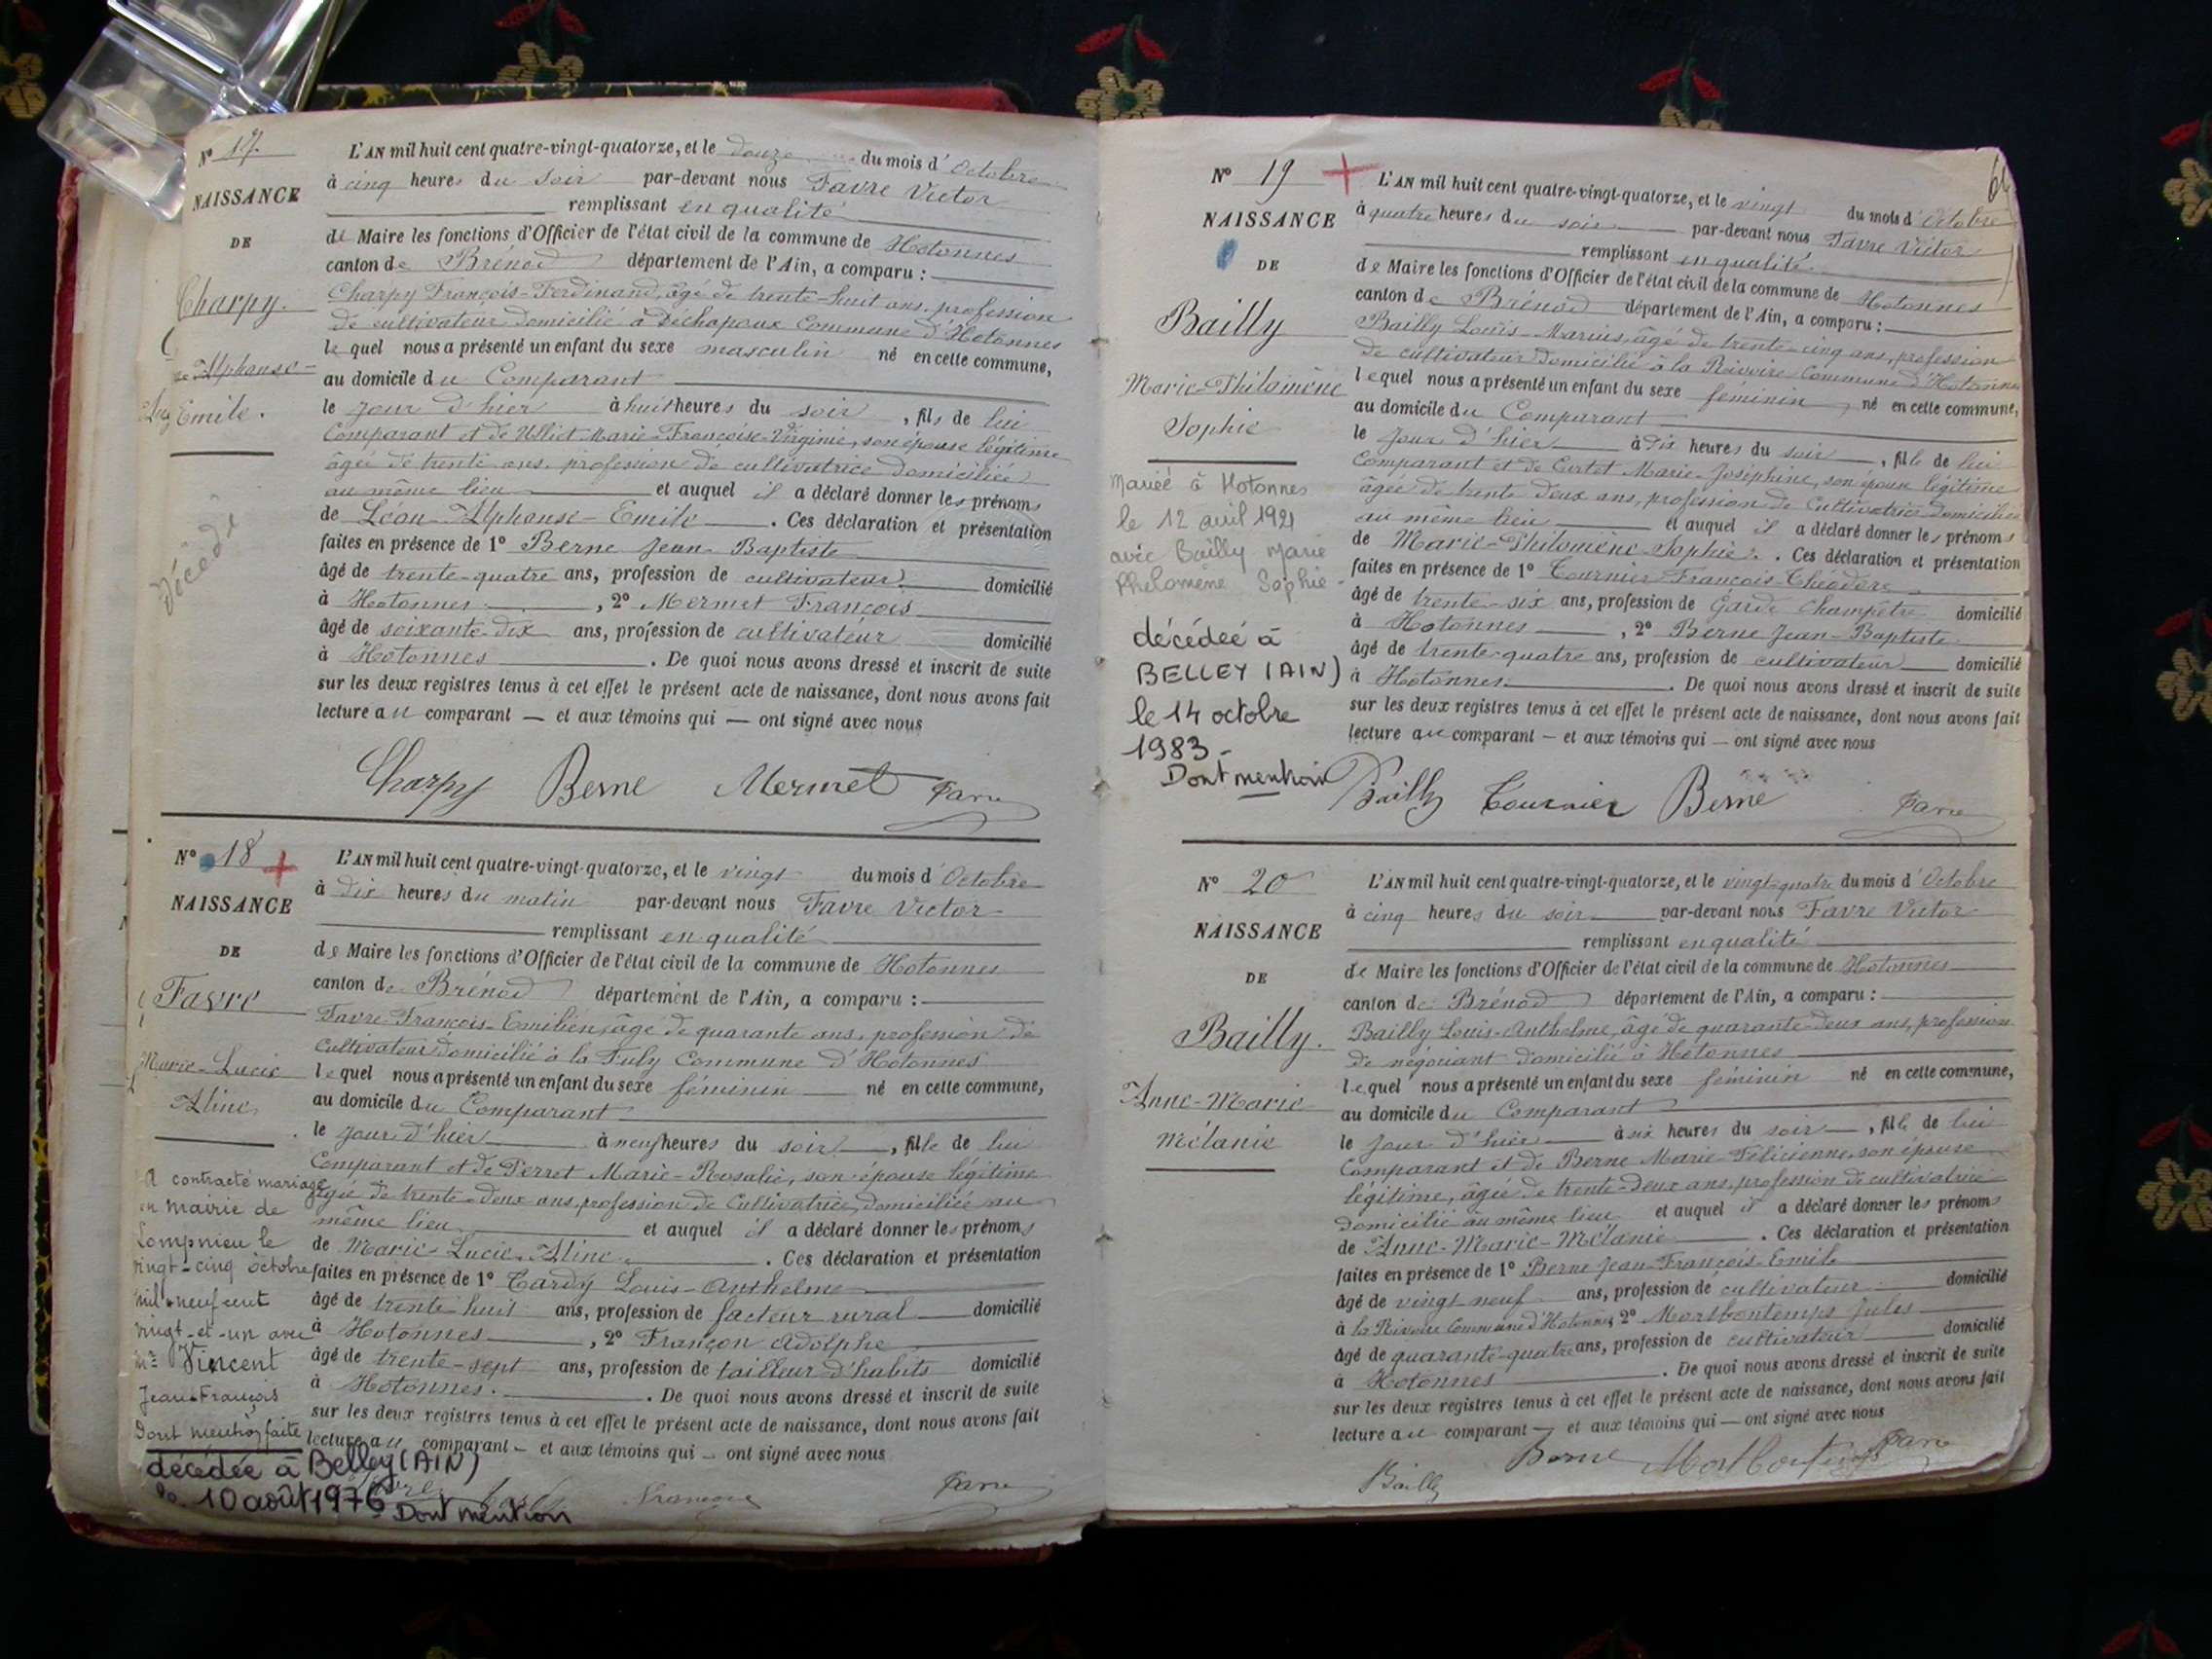 N° 17.
NAISSANCE
DE
Charpy.
Alphonse-
Emile.
décédé
L'AN mil huit cent quatre-vingt-quatorze, et le douze du mois d'Octobre
à cinq heures du soir par-devant nous Favre Victor
remplissant en qualité
de Maire les fonctions d'Officier de l'état civil de la commune de Hotonnes
canton de Brénod département de l'Ain, a comparu :
Charpy François-Ferdinand, âgé de trente-huit ans, profession
de cultivateur domicilié à Commune d'Hotonnes
lequel nous a présenté un enfant du sexe masculin né en cette commune,
au domicile du Comparant
le jour d'hier à huit heures du soir, fils de lui
Comparant et de Ulliet Marie-Françoise-Virginie, son épouse légitime
âgée de trente ans, profession de cultivatrice domiciliée
au même lieu et auquel il a déclaré donner les prénoms
de Léon-Alphonse-Emile. Ces déclaration et présentation
faites en présence de 1° Berne Jean-Baptiste
âgé de trente-quatre ans, profession de cultivateur domicilié
à Hotonnes, 2° Mermet François
âgé de soixante-dix ans, profession de cultivateur domicilié
à Hotonnes. De quoi nous avons dressé et inscrit de suite
sur les deux registres tenus à cet effet le présent acte de naissance, dont nous avons fait
lecture au comparant — et aux témoins qui — ont signé avec nous
Charpy Berne Mermet Favre
N° 18
NAISSANCE
DE
Favre
Marie-Lucie
Aline
A contracté mariage
en mairie de
Lompnieu le
vingt-cinq octobre
mil neuf cent
vingt-et-un avec
Vincent
Jean-François
Dont mention faite
décédée à Belley (AIN)
le 10 août 1976
Dont mention
L'AN mil huit cent quatre-vingt-quatorze, et le vingt du mois d'Octobre
à dix heures du matin par-devant nous Favre Victor
remplissant en qualité
de Maire les fonctions d'Officier de l'état civil de la commune de Hotonnes
canton de Brénod département de l'Ain, a comparu :
Favre François-Emilien, âgé de quarante ans, profession de
Cultivateur domicilié à la Fuly Commune d'Hotonnes
lequel nous a présenté un enfant du sexe féminin né en cette commune,
au domicile du Comparant
le jour d'hier à neuf heures du soir, fille de lui
Comparant et de Perret Marie-Rosalie, son épouse légitime
âgée de trente-deux ans, profession de Cultivatrice, domiciliée au
même lieu et auquel il a déclaré donner les prénoms
de Marie-Lucie-Aline. Ces déclaration et présentation
faites en présence de 1° Tardy Louis-Anthelme
âgé de trente huit ans, profession de facteur rural domicilié
à Hotonnes, 2° Françon Adolphe
âgé de trente-sept ans, profession de tailleur d'habits domicilié
à Hotonnes. De quoi nous avons dressé et inscrit de suite
sur les deux registres tenus à cet effet le présent acte de naissance, dont nous avons fait
lecture au comparant — et aux témoins qui — ont signé avec nous
Favre Françon Favre
N° 19
NAISSANCE
DE
Bailly
Marie-Philomène
Sophie
Mariée à Hotonnes
le 12 avril 1921
avec Bailly Marie
Phelomène Sophie
décédée à
BELLEY (AIN)
le 14 octobre
1983 -
Dont mention
L'AN mil huit cent quatre-vingt-quatorze, et le vingt du mois d'Octobre
à quatre heures du soir par-devant nous Favre Victor
remplissant en qualité
de Maire les fonctions d'Officier de l'état civil de la commune de Hotonnes
canton de Brénod département de l'Ain, a comparu :
Bailly Louis-Marius, âgé de trente-cinq ans, profession
de cultivateur domicilié à la Rivoire Commune d'Hotonnes
lequel nous a présenté un enfant du sexe féminin, né en cette commune,
au domicile du Comparant
le jour d'hier à dix heures du soir, fille de lui
Comparant et de Curtet Marie-Joséphine, son épouse légitime
âgée de trente deux ans, profession de Cultivatrice domiciliée
au même lieu et auquel il a déclaré donner les prénoms
de Marie-Philomène-Sophie. Ces déclaration et présentation
faites en présence de 1° Tournier François-Théodore
âgé de trente-six ans, profession de Garde Champêtre domicilié
à Hotonnes, 2° Berne Jean-Baptiste
âgé de trente-quatre ans, profession de cultivateur domicilié
à Hotonnes. De quoi nous avons dressé et inscrit de suite
sur les deux registres tenus à cet effet le présent acte de naissance, dont nous avons fait
lecture au comparant — et aux témoins qui — ont signé avec nous
Bailly Tournier Berne Favre
N° 20
NAISSANCE
DE
Bailly.
Anne-Marie
Mélanie
L'AN mil huit cent quatre-vingt-quatorze, et le vingt-quatre du mois d'Octobre
à cinq heures du soir par-devant nous Favre Victor
remplissant en qualité
de Maire les fonctions d'Officier de l'état civil de la commune de Hotonnes
canton de Brénod département de l'Ain, a comparu :
Bailly Louis-Anthelme, âgé de quarante-deux ans, profession
de négociant domicilié à Hotonnes
lequel nous a présenté un enfant du sexe féminin né en cette commune,
au domicile du Comparant
le jour d'hier à six heures du soir, fille de lui
Comparant et de Berne Marie-Félicienne, son épouse
légitime, âgée de trente-deux ans, profession de cultivatrice
domicilié au même lieu et auquel il a déclaré donner les prénoms
de Anne-Marie-Mélanie. Ces déclaration et présentation
faites en présence de 1° Berne Jean-François-Emile
âgé de vingt neuf ans, profession de cultivateur domicilié
à la Rivoire Commune d'Hotonnes 2° Montbontemps Jules
âgé de quarante-quatre ans, profession de cultivateur domicilié
à Hotonnes. De quoi nous avons dressé et inscrit de suite
sur les deux registres tenus à cet effet le présent acte de naissance, dont nous avons fait
lecture au comparant — et aux témoins qui — ont signé avec nous
Bailly Berne Favre